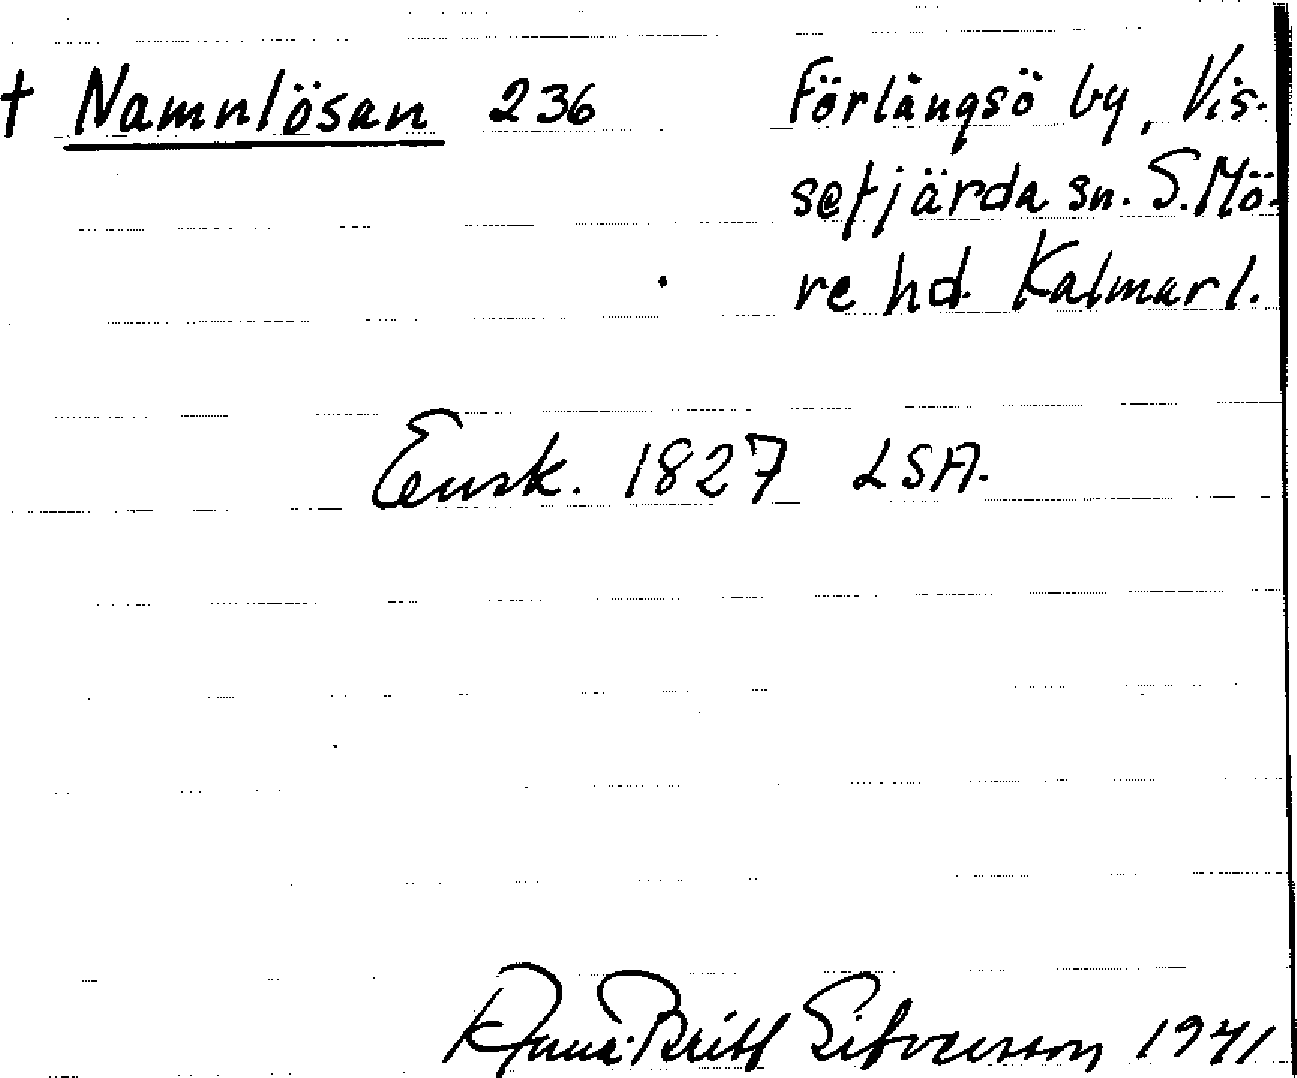 † Namnlösan 236 Förlångsö by, Vis-
sefjärda sn. S. Mö-
re hd. Kalmar l.
Ensk. 1827 LSA.
Anna-Britt 1941